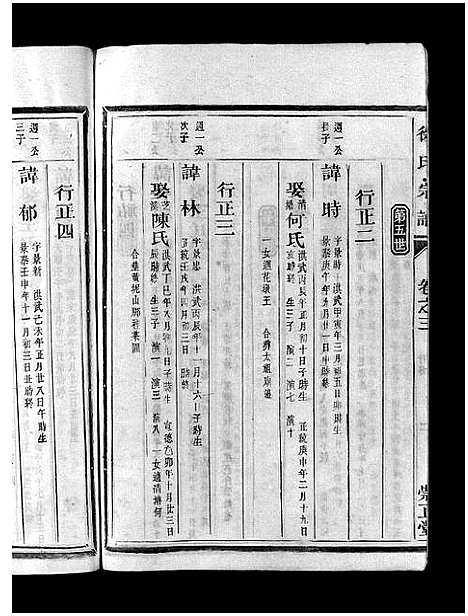 氏宗譜
卷之三
第五世
行正二
週一公
長子
諱時
字景時 洪武甲寅年三月初五日時生
景泰庚午年十一月廿一日申時終
娶清何氏
洪武丙辰年正月初十日子時生 正統庚申年二月十九日
一女適花墩王 合葬太祖廟邊
行正三
週一公
次子
諱林
字景忠 洪武丙辰年十一月十六日子時生
娶芝陳氏
洪武丁巳年八月初八日子時生 宣德乙卯年十月廿三日
辰時終 生三子 演一 演三 演八 一女適清塘何
合葬黃泥山
行正四
週一公
三子
諱郁
字景新 洪武己未年正月廿八日午時生
景泰壬申年十一月初三日丑時終